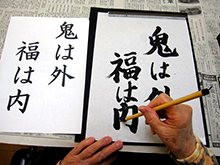 鬼は外
福は内
鬼は外
福は内